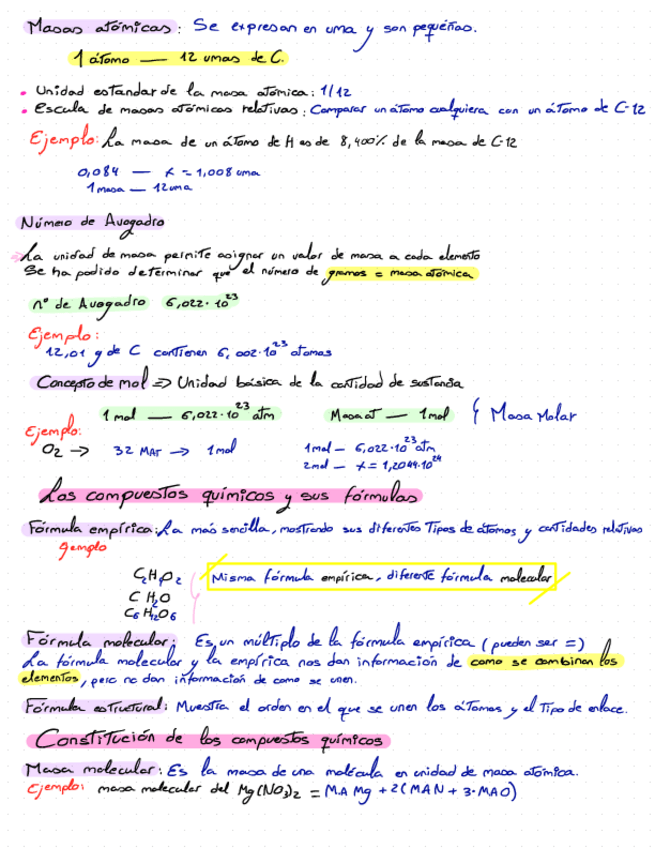 Masas atómicas: Se expresan en uma y son pequeñas.
1 átomo — 12 umas de C.
• Unidad estandar de la masa atómica: 1/12
• Escula de masas atómicas relativas: Comparar un átomo cualquiera con un átomo de C-12
Ejemplo: La masa de un átomo de H es de 8,400% de la masa de C-12
0,084 — x = 1,008 uma
1 masa — 12uma
Número de Avogadro
La unidad de masa permite asignar un valor de masa a cada elemento
Se ha podido determinar que el número de gramos = masa atómica
nº de Avogadro 6,022·10²³
Ejemplo:
12,01 g de C contienen 6,002·10²³ atomos
Concepto de mol => Unidad básica de la cantidad de sustancia
1 mol — 6,022·10²³ atm Masa at — 1mol { Masa Molar
Ejemplo:
O₂ -> 32 MAT -> 1mol 1mol — 6,022·10²³ atm
2mol — x = 1,2044·10²⁴
Los compuestos químicos y sus fórmulas
Fórmula empírica: La más sencilla, mostrando sus diferentes Tipos de átomos y cantidades relativas
Ejemplo
C₂H₄O₂ Misma fórmula empírica, diferente fórmula molecular
CH₂O
C₆H₁₂O₆
Fórmula molecular: Es un múltiplo de la fórmula empírica (pueden ser =)
La fórmula molecular y la empírica nos dan información de como se combinan los
elementos, pero no dan información de como se unen.
Fórmula estructural: Muestra el orden en el que se unen los átomos y el Tipo de enlace.
Constitución de los compuestos químicos
Masa molecular: Es la masa de una molécula en unidad de masa atómica.
Ejemplo: masa molecular del Mg(NO₃)₂ = M.A Mg + 2(MAN + 3·MAO)